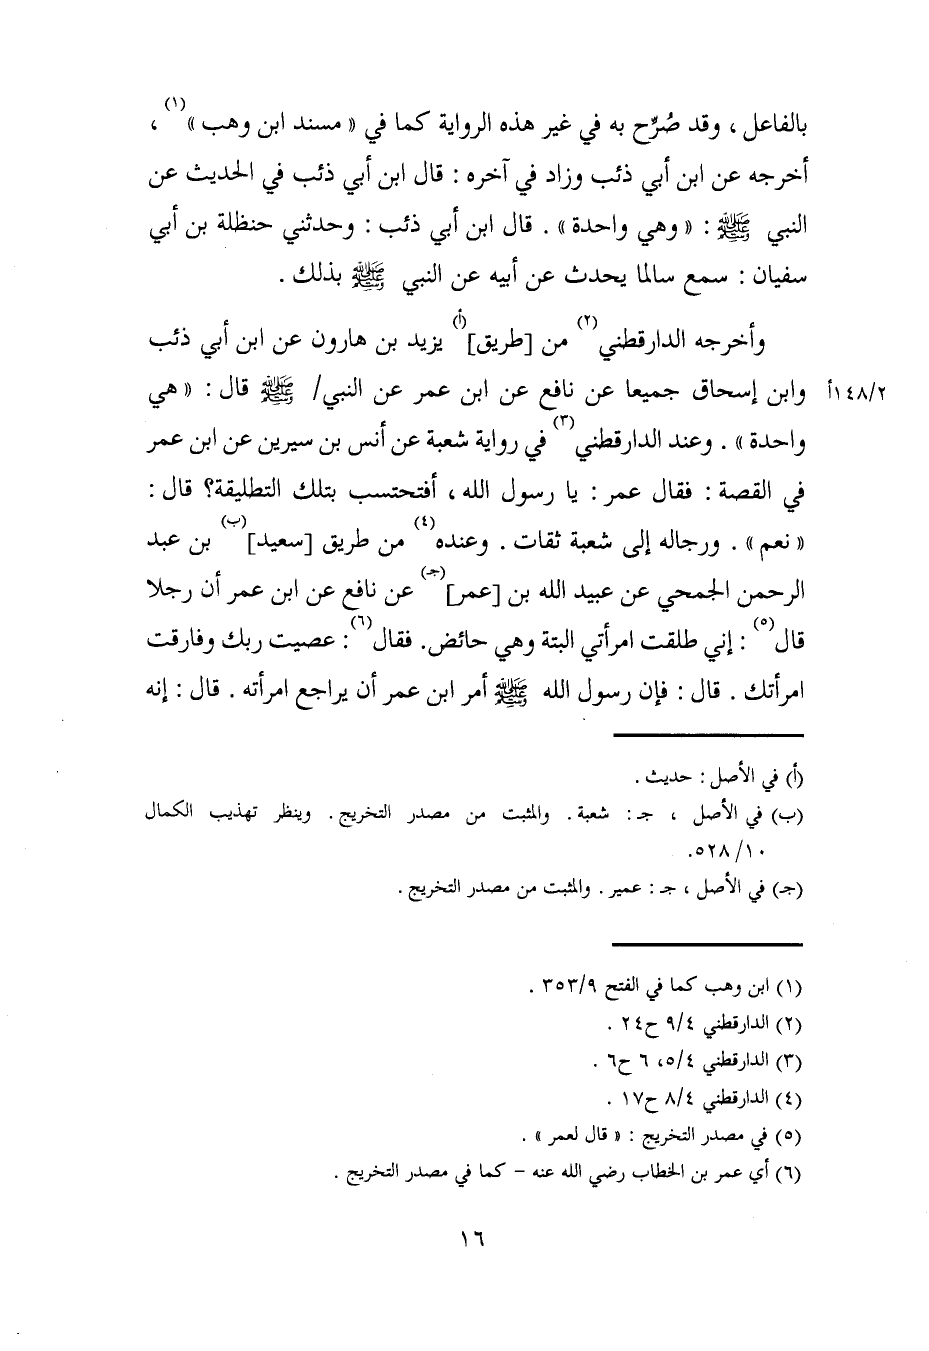 بالفاعل ، وقد صُرِّح به في غير هذه الرواية كما في « مسند ابن وهب »(١) ،
أخرجه عن ابن أبي ذئب وزاد في آخره : قال ابن أبي ذئب في الحديث عن
النبي ﷺ : « وهي واحدة » . قال ابن أبي ذئب : وحدثني حنظلة بن أبي
سفيان : سمع سالما يحدث عن أبيه عن النبي ﷺ بذلك .
وأخرجه الدارقطني(٢) من [طريق](أ) يزيد بن هارون عن ابن أبي ذئب
١٤٨/٢أ وابن إسحاق جميعا عن نافع عن ابن عمر عن النبي/ ﷺ قال : « هي
واحدة » . وعند الدارقطني(٣) في رواية شعبة عن أنس بن سيرين عن ابن عمر
في القصة : فقال عمر : يا رسول الله ، أفتحتسب بتلك التطليقة؟ قال :
« نعم » . ورجاله إلى شعبة ثقات . وعنده(٤) من طريق [سعيد](ب) بن عبد
الرحمن الجمحي عن عبيد الله بن [عمر](جـ) عن نافع عن ابن عمر أن رجلا
قال(٥) : إني طلقت امرأتي البتة وهي حائض. فقال(٦) : عصيت ربك وفارقت
امرأتك . قال : فإن رسول الله ﷺ أمر ابن عمر أن يراجع امرأته . قال : إنه
(أ) في الأصل : حديث .
(ب) في الأصل ، جـ : شعبة . والمثبت من مصدر التخريج . وينظر تهذيب الكمال
١٠/ ٥٢٨.
(جـ) في الأصل ، جـ : عمير . والمثبت من مصدر التخريج .
(١) ابن وهب كما في الفتح ٣٥٣/٩ .
(٢) الدارقطني ٩/٤ ح٢٤ .
(٣) الدارقطني ٥/٤، ٦ ح٦ .
(٤) الدارقطني ٨/٤ ح١٧ .
(٥) في مصدر التخريج : « قال لعمر » .
(٦) أي عمر بن الخطاب رضي الله عنه – كما في مصدر التخريج .
١٦